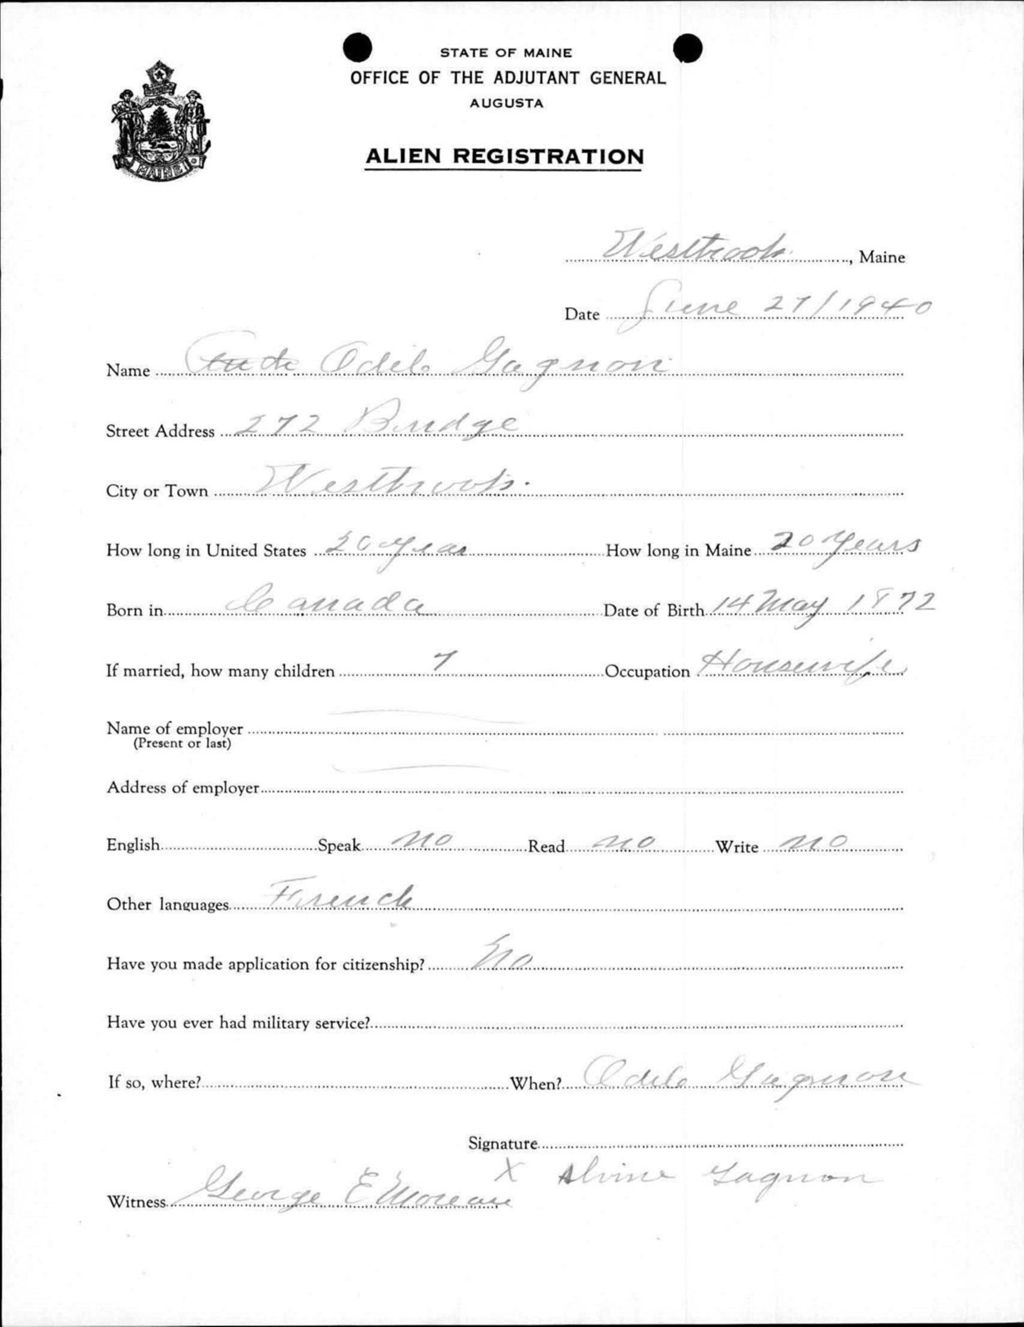 STATE OF MAINE
OFFICE OF THE ADJUTANT GENERAL
AUGUSTA
ALIEN REGISTRATION
MAINE
Westbrook, Maine
Date June 27/1940
Name Odile Gagnon
Street Address 272 Bridge
City or Town Westbrook.
How long in United States 20 year How long in Maine 20 Years
Born in Canada Date of Birth 14 May 1872
If married, how many children 7 Occupation Housewife
Name of employer
(Present or last)
Address of employer
English Speak no Read no Write no
Other languages French
Have you made application for citizenship? No
Have you ever had military service?
If so, where? When? Odile Gagnon
Signature
X Alvine Gagnon
Witness George E Moreau